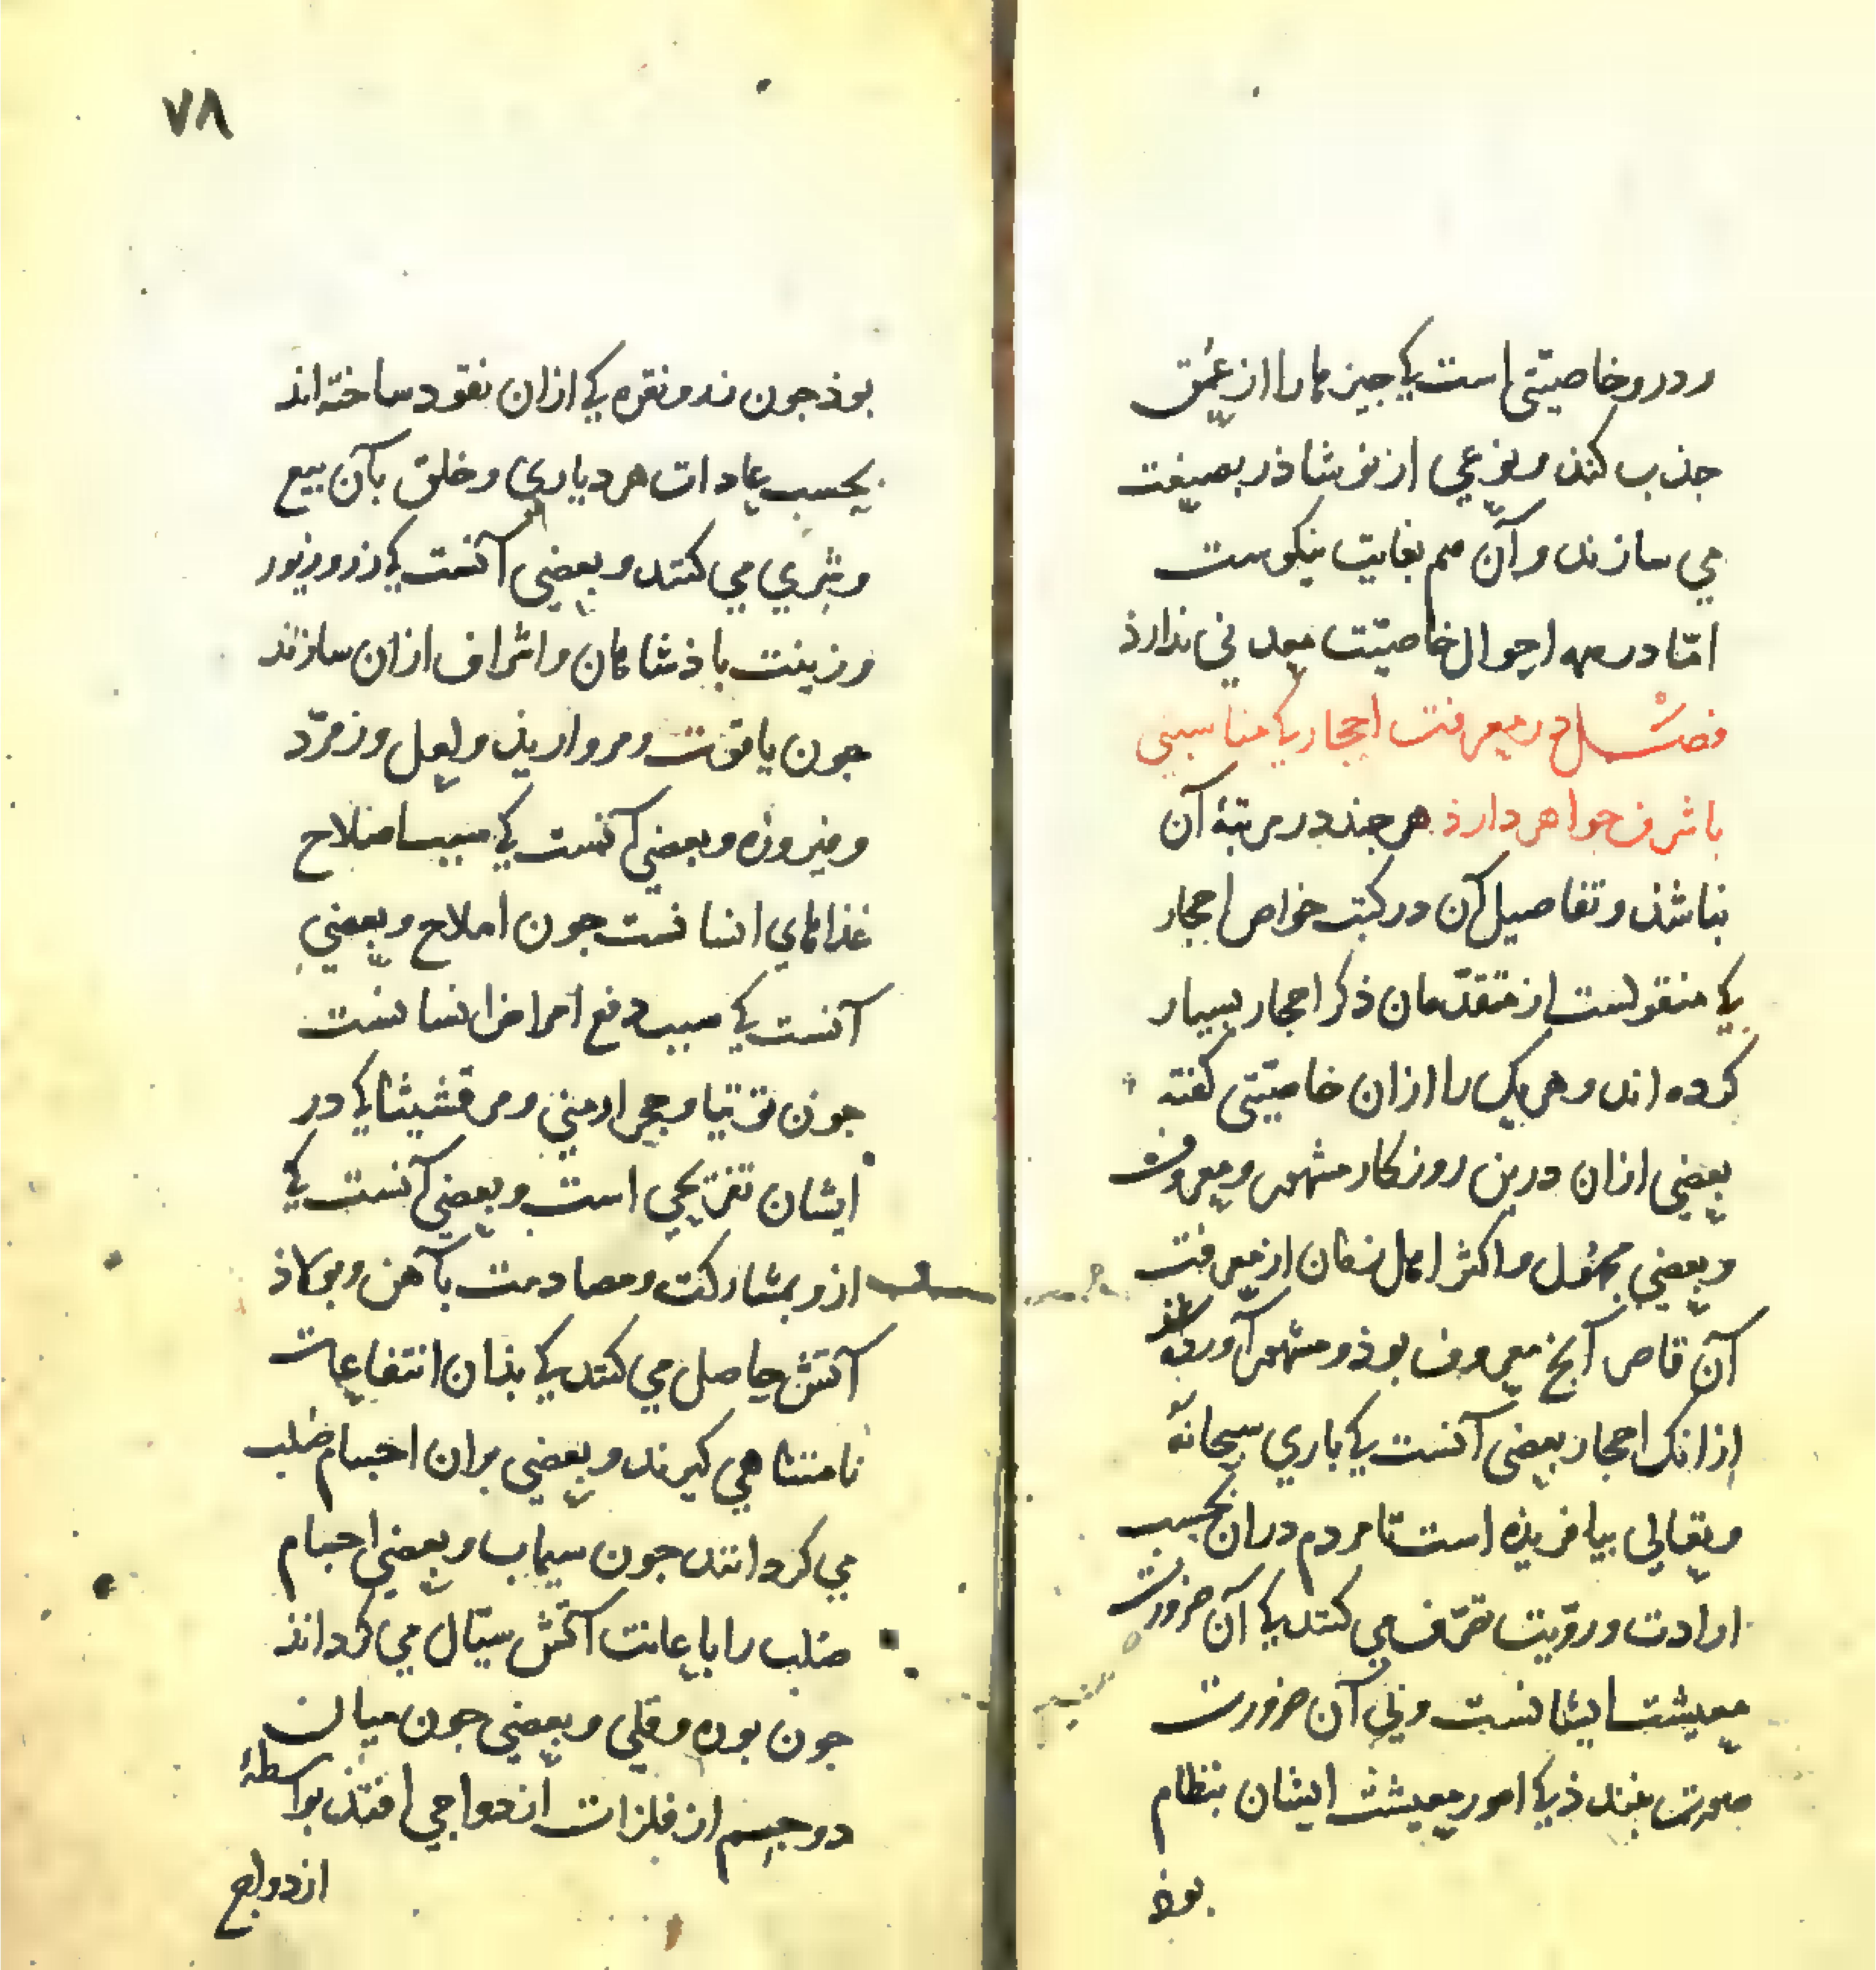 و درو خاصیتی است کی جیزها را از عمق
جذب کند و نوعی از نوشاذر بصنعت
می سازند و آن هم بغایت نیکوست
امّا در همه احوال خاصیّت معدنی ندارذ
فصل در معرفت احجار کی مناسبتی
با شرف جواهر دارذ هر جند در مرتبۀ آن
نباشذ و تفاصیل آن در کتب خواص احجار
کی منقولست از متقدّمان ذکر احجار بسیار
کرده اند و هر یک را ازان خاصیّتی کفته
بعضی ازان درین روزکار مشهور و معروف
و بعضی مجهول و اکثر اهل زمان از معرفت
آن قاصر آنج معروف بوذ و مشهور آورده شذ
ازانک احجار بعضی آنست کی باری سبحانه
و تعالی بیافریذه است تا مردم دران بحسب
ارادت و رویّت تصرّف می کنند کی آن ضرورت
معیشت ایشانست و بی آن ضرورت
صورت نبندذ کی امور معیشت ایشان بنظام
بوذ
٧٨
بوذ جون زر و نقره کی ازان نقود ساخته اند
بحسب عادات هر دیاری و خلق بآن بیع
و شری می کنند و بعضی آنست کی زر و زیور
و زینت باذشاهان و اشراف ازان سازند
جون یاقوت و مروارید و لعل و زمرّد
و فیروزه و بعضی آنست کی سبب اصلاح
غذاهای انسانست جون املاح و بعضی
آنست کی سبب دفع امراض انسانست
جون توتیا و حجر ارمنی و مرقشیثا کی در
ایشان تفریحی است و بعضی آنست کی
ازو بمشارکت و مصادمت بآهن و بولاذ
آتش حاصل می کنند کی بذان انتفاعات
نامتناهی کیرند و بعضی بران اجسام صلب
می کردانند جون سیماب و بعضی اجسام
صلب را باعانت آتش سیّال می کردانذ
جون بوره و قلی و بعضی جون میان
دو جسم از فلزات ازدواجی افتذ بواسطۀ
ازدواج